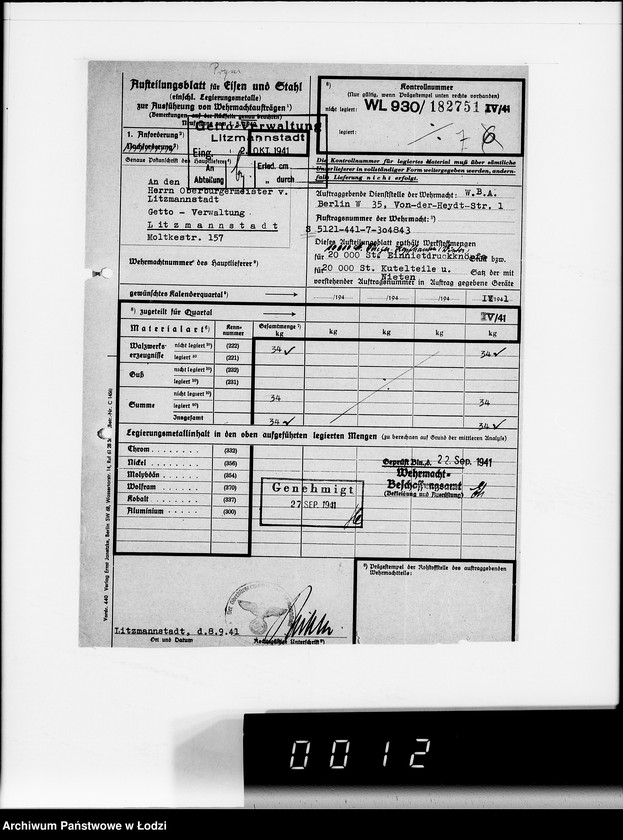 Aufteilungsblatt für Eisen und Stahl
(einschl. Legierungsmetalle)
zur Ausführung von Wehrmachtaufträgen¹)
(Bemerkungen auf der Rückseite genau beachten)
Kontrollnummer
(Nur gültig, wenn Prägestempel unten rechts vorhanden)
nicht legiert: WL 930/ 182751 IV/41
legiert:
Getto-Verwaltung
Litzmannstadt
Eing. 2. OKT. 1941
An
Abteilung
Erled. am
„ durch
1. Anforderung³)
Nachforderung³)
Genaue Postanschrift des Hauptlieferers⁴)
An den
Herrn Oberbürgermeister v.
Litzmannstadt
Getto - Verwaltung
Litzmannstadt
Moltkestr. 157
Wehrmachtnummer des Hauptlieferers⁵)
Die Kontrollnummer für legiertes Material muß über sämtliche
Unterlieferer in vollständiger Form weitergegeben werden, andern-
falls Lieferung nicht erfolgt.
Auftraggebende Dienststelle der Wehrmacht: W.B.A.
Berlin W 35, Von-der-Heydt-Str. 1
Auftragsnummer der Wehrmacht:³)
S 5121-441-7-304843
Dieses Aufteilungsblatt enthält Werkstoffmengen
für 20 000 St. Einnietdruckknöpfe Stück bzw.
für 20 000 St. Kutelteile u.
Nieten Satz der mit
vorstehender Auftragsnummer in Auftrag gegebene Geräte
gewünschtes Kalenderquartal⁶) /194 /194 /194 IV 1941
⁹) zugeteilt für Quartal IV/41
Materialart⁶) Kenn-nummer Gesamtmenge⁷) kg kg kg kg kg
Walzwerks-erzeugnisse nicht legiert (222) 34 34
legiert (221)
Guß nicht legiert (232)
legiert (231)
Summe nicht legiert 34 34
legiert
Insgesamt 34 34
Legierungsmetallinhalt in den oben aufgeführten legierten Mengen (zu berechnen auf Grund der mittleren Analyse)
Chrom (332)
Nickel (356)
Molybdän (354)
Wolfram (379)
Kobalt (337)
Aluminium (300)
Geprüft Bln., d. 22. Sep. 1941
Wehrmacht-
Beschaffungsamt
(Bekleidung und Ausrüstung)
Genehmigt
27 SEP. 1941
⁹) Prägestempel der Rohstoffstelle des auftraggebenden
Wehrmachtteils:
Litzmannstadt, d.8.9.41
Ort und Datum
Rechtsgültige Unterschrift⁸)
0012
Archiwum Państwowe w Łodzi